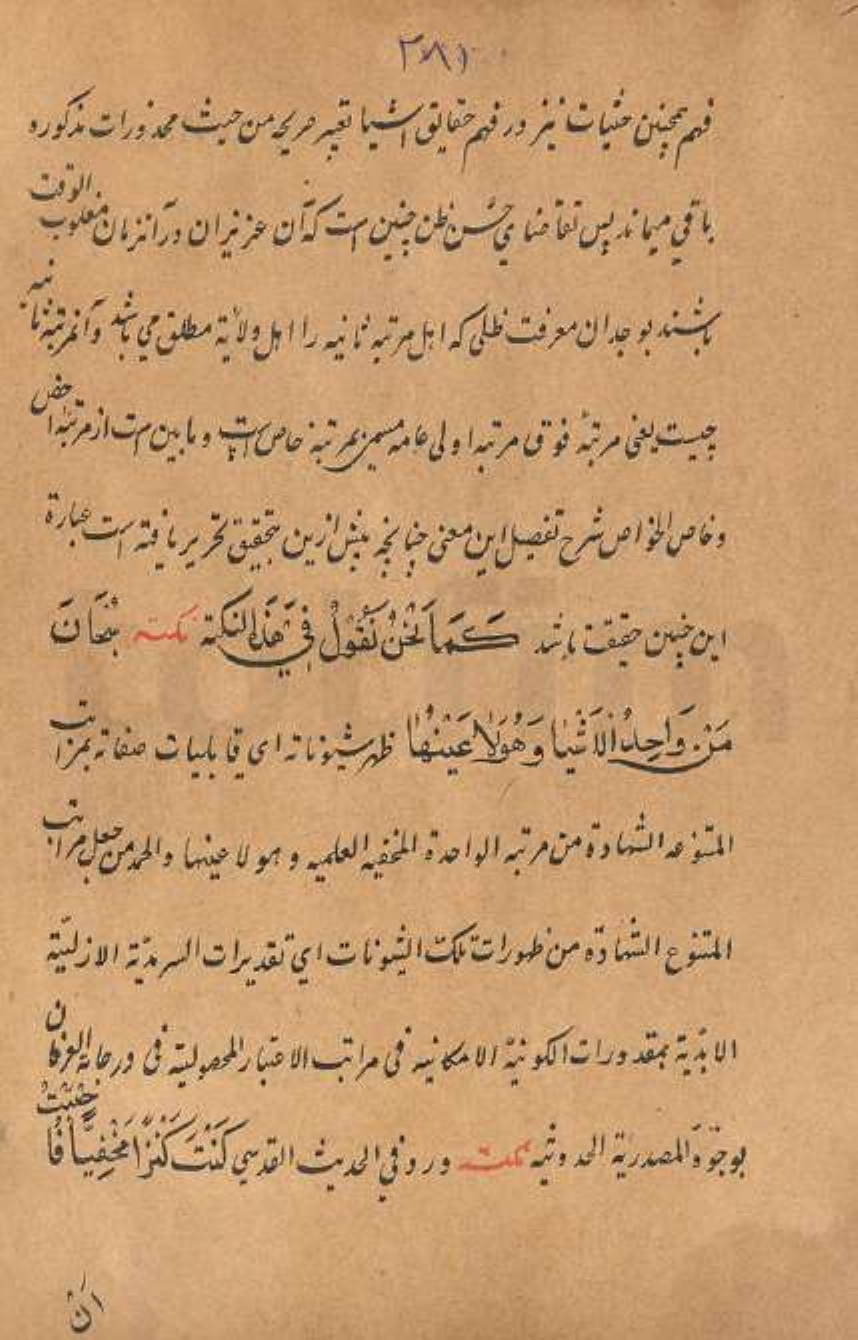 ۳۸۱
فهم همچنین حثیات نیز در فهم حقایق اشیا تغییر صریحه من حیث محذورات مذکوره
باقی میماند پس تقاضای حسن ظن چنین است که آن عزیزان در آنزمان مغلوب الوقت
باشند بوجدان معرفت ظلی که اهل مرتبه ثانیه را اهل ولایة مطلق می باشد و آنمرتبه ثانیه
چیست یعنی مرتبهٔ فوق مرتبه اولی عامه مسمی بمرتبهٔ خاص است و مابین است از مرتبهٔ اخص
وخاص الخواص شرح تفصیل این معنی چنانچه پیش ازین بتحقیق تحریر یافته است عبارة
این چنین حقیقت باشد كَمَا نَحْنُ نَقُولُ فِي هَذِهِ النكتة نکته سُبْحَانَ
مَنْ وَاحِدُ الاَشْيَا وَهُوَلَا عَيْنُهَا ظهر شیوناته ای قابلیات صفاته بمراتب
المتنوعه الشهادة من مرتبه الواحدة المخفیه العلمیه و هو لا عینها والحمد من جعل مراتب
المتنوع الشهادة من ظهورات تلک الشیونات ای تقدیرات السرمدیّة الازلیّة
الابدیّة بمقدورات الکونیّة الامکانیه فی مراتب الاعتبار المحصولیته فی درجات العرفان
بوجوه المصدریّة الحدوثیه نکته ورد فی الحدیث القدسی كُنْتُ كَنْزًا مَخْفِيًّا فَاُحْبَبْتُ
اَنْ